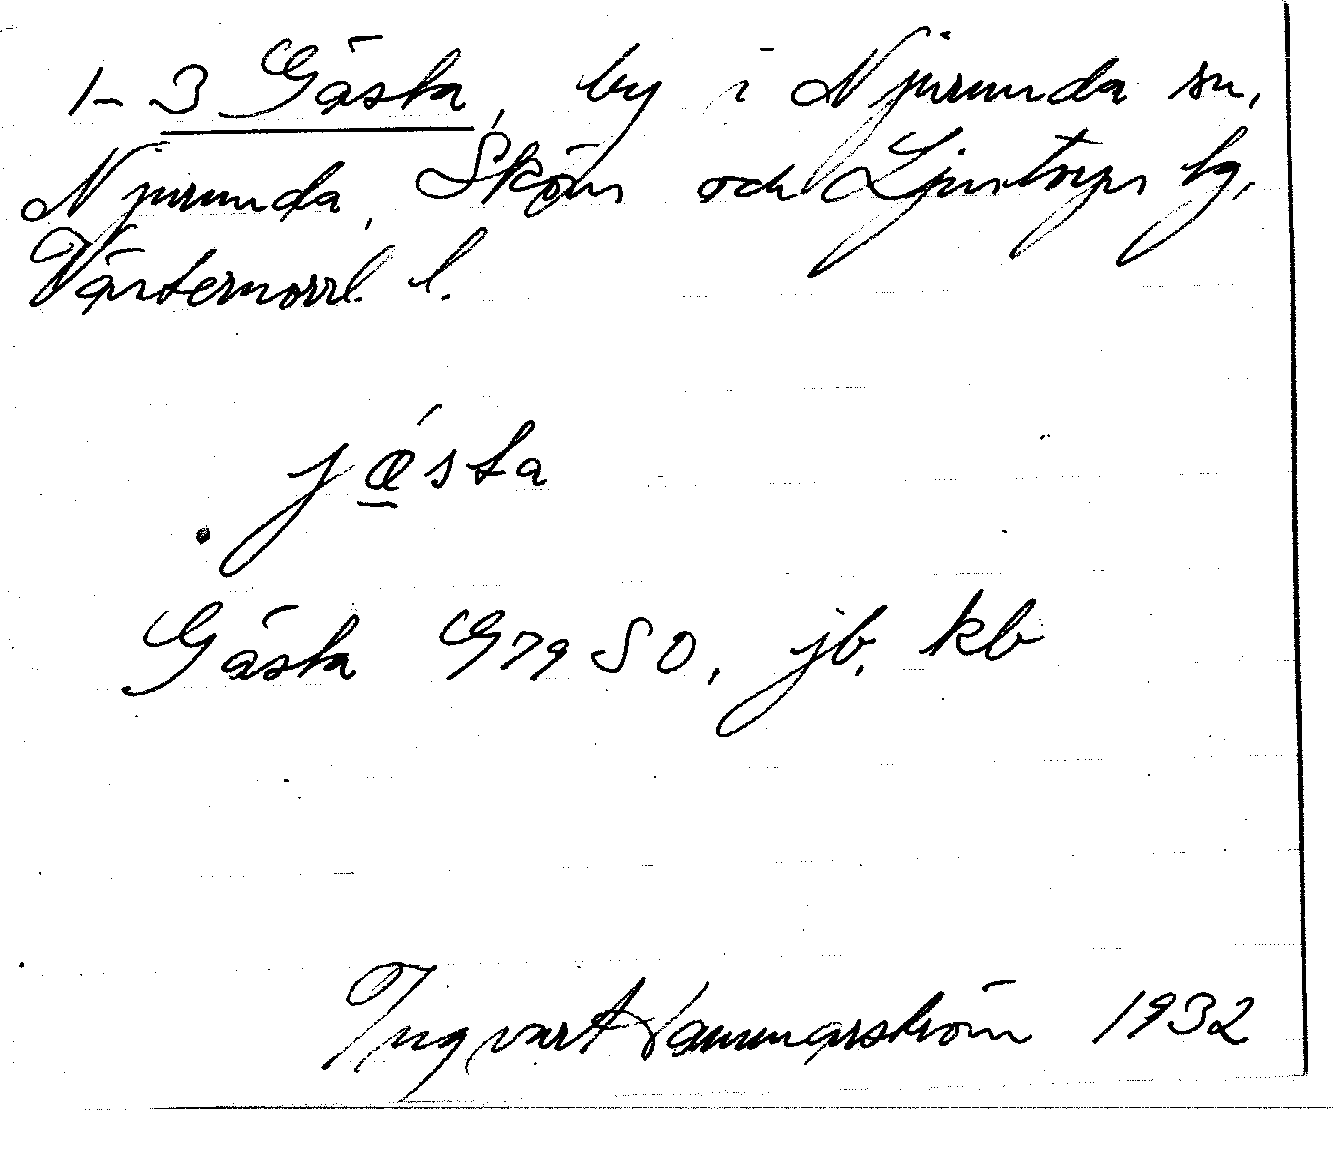 1-3 Gästa, by i Njurunda sn,
Njurunda, Sköns och Ljustorps tg,
Västernorrl. l.
jǽsta
Gästa G79SO, jb, kb
Ingvart Hammarström 1932